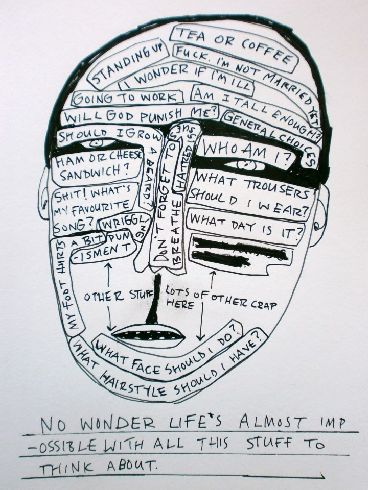 TEA OR COFFEE
STANDING UP
FUCK. I'M NOT MARRIED YET
I WONDER IF I'M ILL
GOING TO WORK
AM I TALL ENOUGH?
WILL GOD PUNISH ME?
GENERAL CHOICES
SHOULD I GROW
A BEARD?
DON'T FORGET TO
BREATHE
HATRED
WHO AM I?
HAM OR CHEESE
SANDWICH?
WHAT TROUSERS
SHOULD I WEAR?
SHIT! WHAT'S
MY FAVOURITE
SONG?
WRIGGLING
WHAT DAY IS IT?
A BIT
PUN
ISMENT
MY FOOT HURTS
OTHER STUFF
LOTS OF OTHER CRAP
HERE
WHAT FACE SHOULD I DO?
WHAT HAIRSTYLE SHOULD I HAVE?
NO WONDER LIFE'S ALMOST IMP
-OSSIBLE WITH ALL THIS STUFF TO
THINK ABOUT.